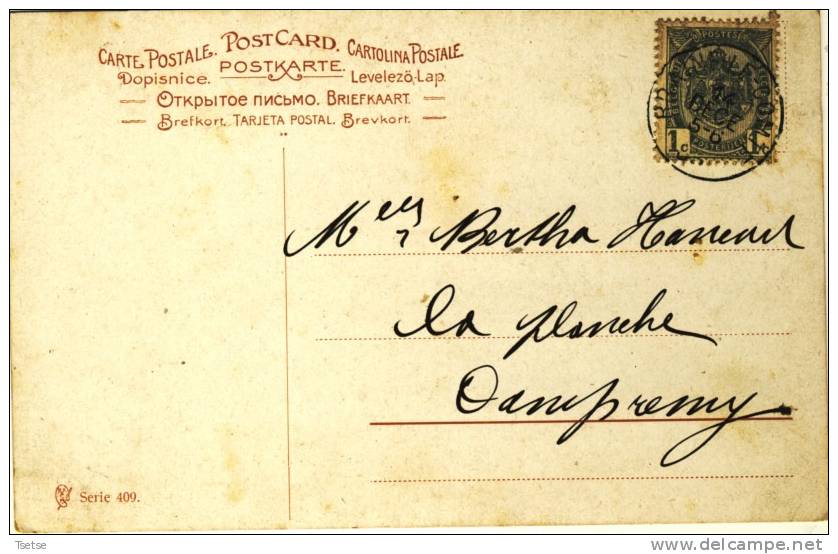 CARTE POSTALE. POSTCARD. CARTOLINA POSTALE.
Dopisnice. POSTKARTE. Levelező-Lap.
Открытое письмо. BRIEFKAART.
Brefkort. TARJETA POSTAL. Brevkort.
POSTES
1c 1c
DECE
5-6
Melles Bertha Hancart
la planche
Dampremy
Serie 409.
Tsetse
www.delcampe.net